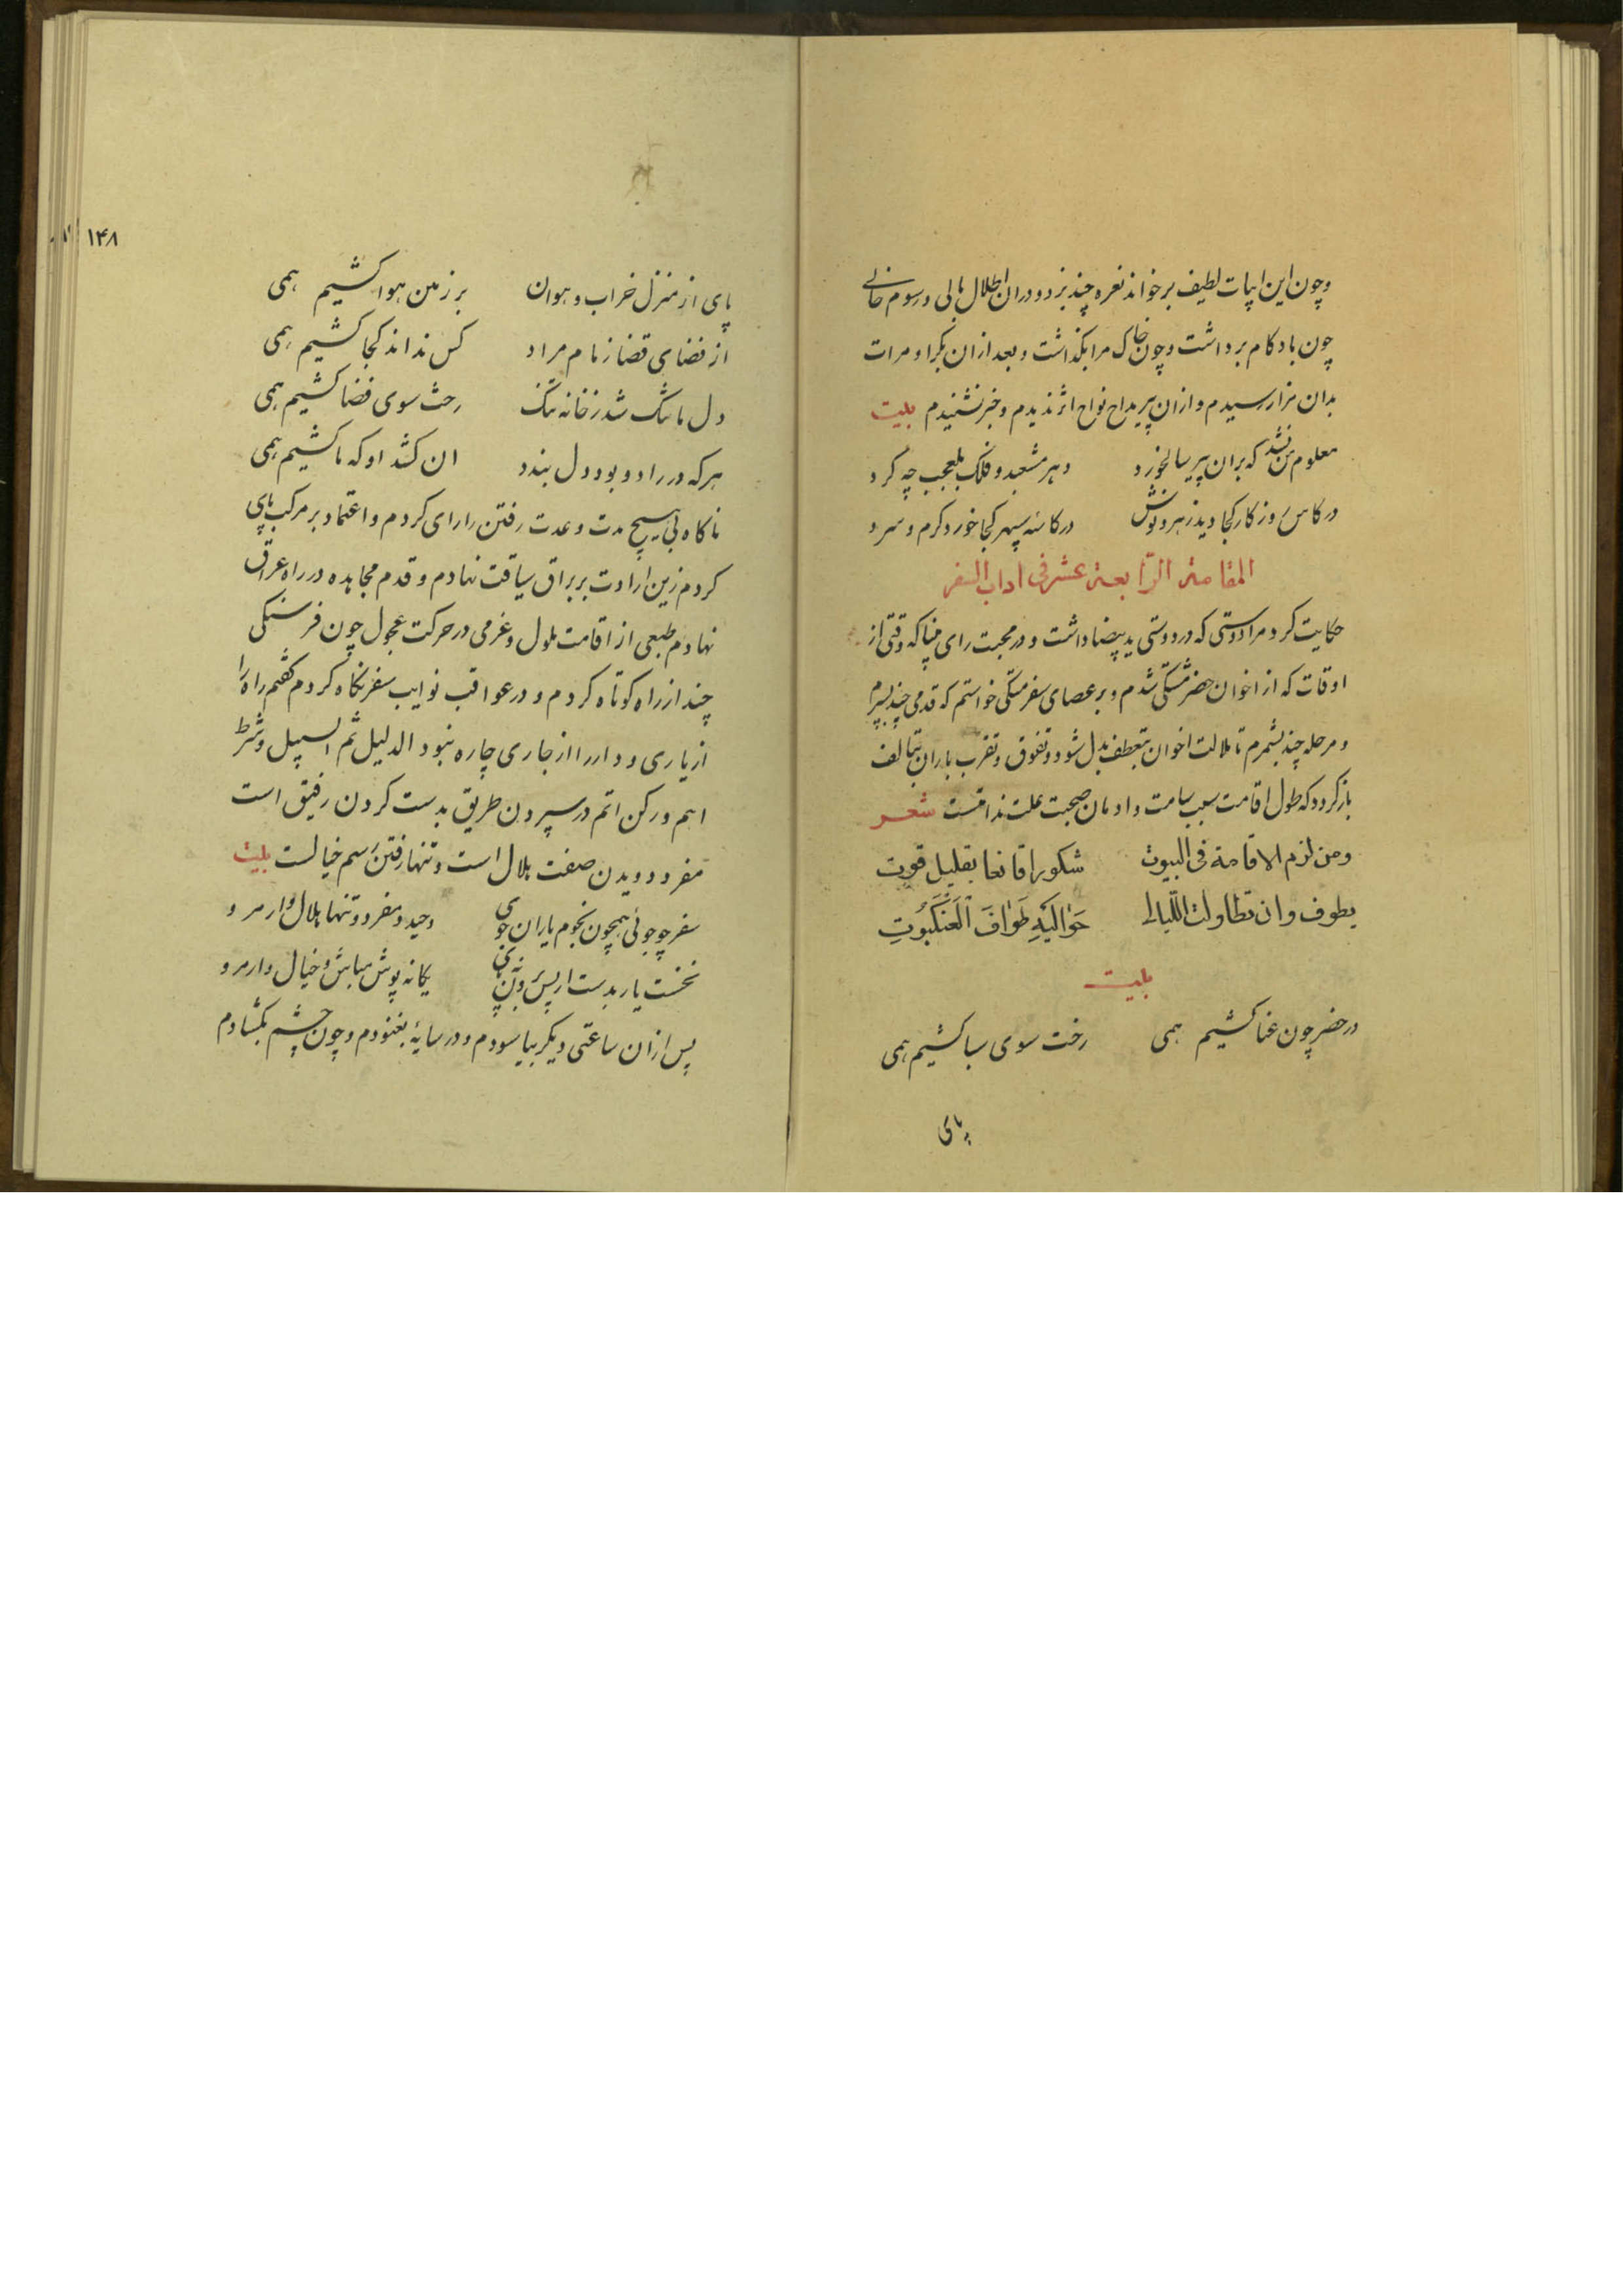 وچون این ابیات لطیف برخواند نعره چند بزد ودران اطلال بالی ورسوم خالی
چون باد کام برداشت وچون خاک مرا بگذاشت وبعد ازان بکرا ومرات
بدان مزار رسیدم وازان پیر مداح نواح اثر ندیدم وخبر نشنیدم بیت
معلوم من نشد که بران پیر سالخورد دهر مشعبد وفلک بلعجب چه کرد
در کاس روزکار کجا دید زهر ونوش در کاسه سپهر کجا خورد کرم وسرد
المقامة الرابعة عشر فی اداب السفر
حکایت کرد مرا دوستی که در دوستی ید بیضا داشت ودر محبت رای مینا که وقتی از
اوقات که از اخوان حضر مشتکی شدم وبر عصای سفر متکی خواستم که قدمی چند بسپرم
و مرحله چند بشمرم تا ملالت اخوان بتعطف بدل شود وتفوق وتقرب یاران بتالف
باز کردد که طول اقامت سبب سامت وادمان صحبت علت ندامتست شعر
ومن لزم الاقامة فی البیوت شکورا قانعا بقلیل قوت
یطوف وان تطاولت اللیالی حَوالَیهِ طَوافَ العَنکَبُوتِ
بیت
در حضر چون عنا کشیم همی رخت سوی سبا کشیم همی
پای
۱۴۸
پای از منزل خراب وهوان بر زمین هوا کشیم همی
از فضای قضا زمام مراد کس نداند کجا کشیم همی
دل ما تنک شد زخانه تنک رخت سوی فضا کشیم همی
هرکه در راد وبود دل بندد ان کشد او که ما کشیم همی
ناکاه بی هیچ مدت وعدت رفتن را رای کردم واعتماد بر مرکب پای
کردم زین ارادت بر براق سیاقت نهادم وقدم مجاهده در راه عراق
نهادم طبعی از اقامت ملول وعزمی در حرکت عجول چون فرسنکی
چند از راه کوتاه کردم ودر عواقب نوایب سفر نکاه کردم کفتم راه را
از یاری ودار را از جاری چاره نبود الدلیل ثم السبیل وشرط
اهم ورکن اتم در سپردن طریق بدست کردن رفیق است
مفرد دویدن صفت هلال است وتنها رفتن رسم خیالست بیت
سفر چو جوئی همچون نجوم یاران جوی وحید ومفرد وتنها هلال وار مرو
نخست یار بدست ار پس وپی یکانه پوش مباش وخیال وار مرو
پس ازان ساعتی دیکر بیاسودم ودر سایهٔ بغنودم وچون چشم بکشادم